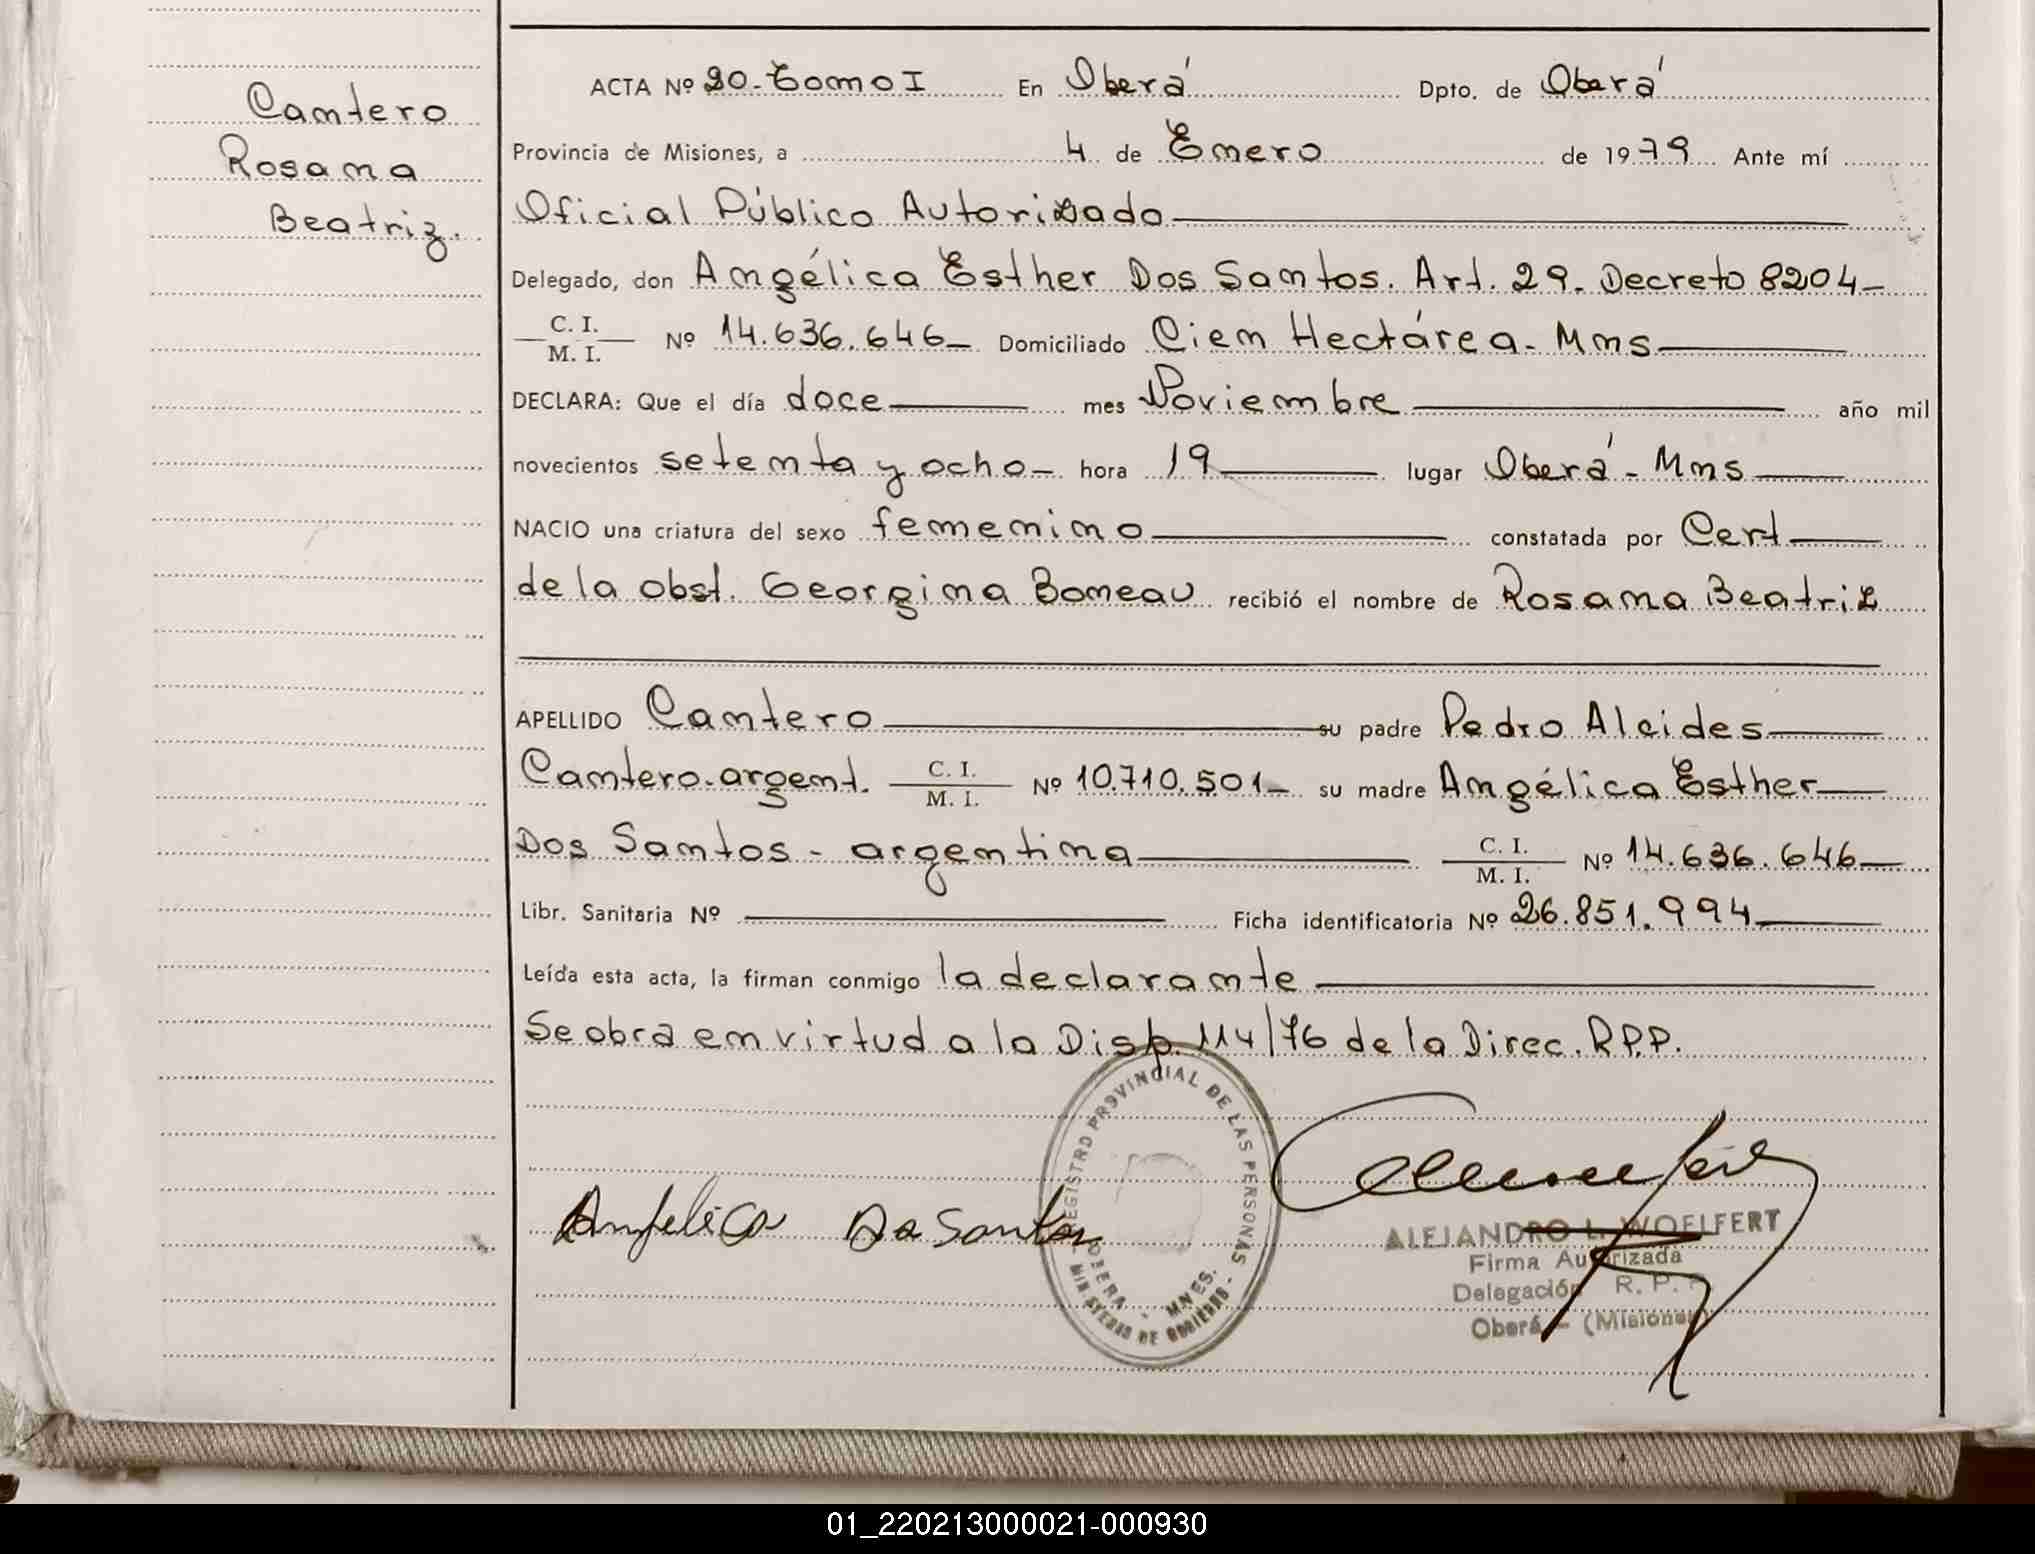 Cantero
Rosana
Beatriz.
ACTA Nº 20. Tomo I En Oberá Dpto. de Oberá
Provincia de Misiones, a 4 de Enero de 1979 Ante mí
Oficial Público Autorizado
Delegado, don Angélica Esther Dos Santos. Art. 29. Decreto 8204-
C. I.
M. I. Nº 14.636.646- Domiciliado Cien Hectárea - Mnes
DECLARA: Que el día doce mes Noviembre año mil
novecientos setenta y ocho- hora 19 lugar Oberá - Mnes
NACIO una criatura del sexo femenino constatada por Cert
de la obst. Georgina Boneau recibió el nombre de Rosana Beatriz
APELLIDO Cantero su padre Pedro Alcides
Cantero. argent. C. I. M. I. Nº 10.710.501- su madre Angélica Esther
Dos Santos - argentina C. I. M. I. Nº 14.636.646
Libr. Sanitaria Nº Ficha identificatoria Nº 26.851.994
Leída esta acta, la firman conmigo la declarante
Se obra en virtud a la Disp. 114/76 de la Direc. R.P.P.
REGISTRO PROVINCIAL DE LAS PERSONAS
OBERA - MNES.
MINISTERIO DE GOBIERNO
Angelica Do Santos
ALEJANDRO L. WOELFERT
Firma Autorizada
Delegación R. P. P.
Oberá - (Misiones)
01_220213000021-000930